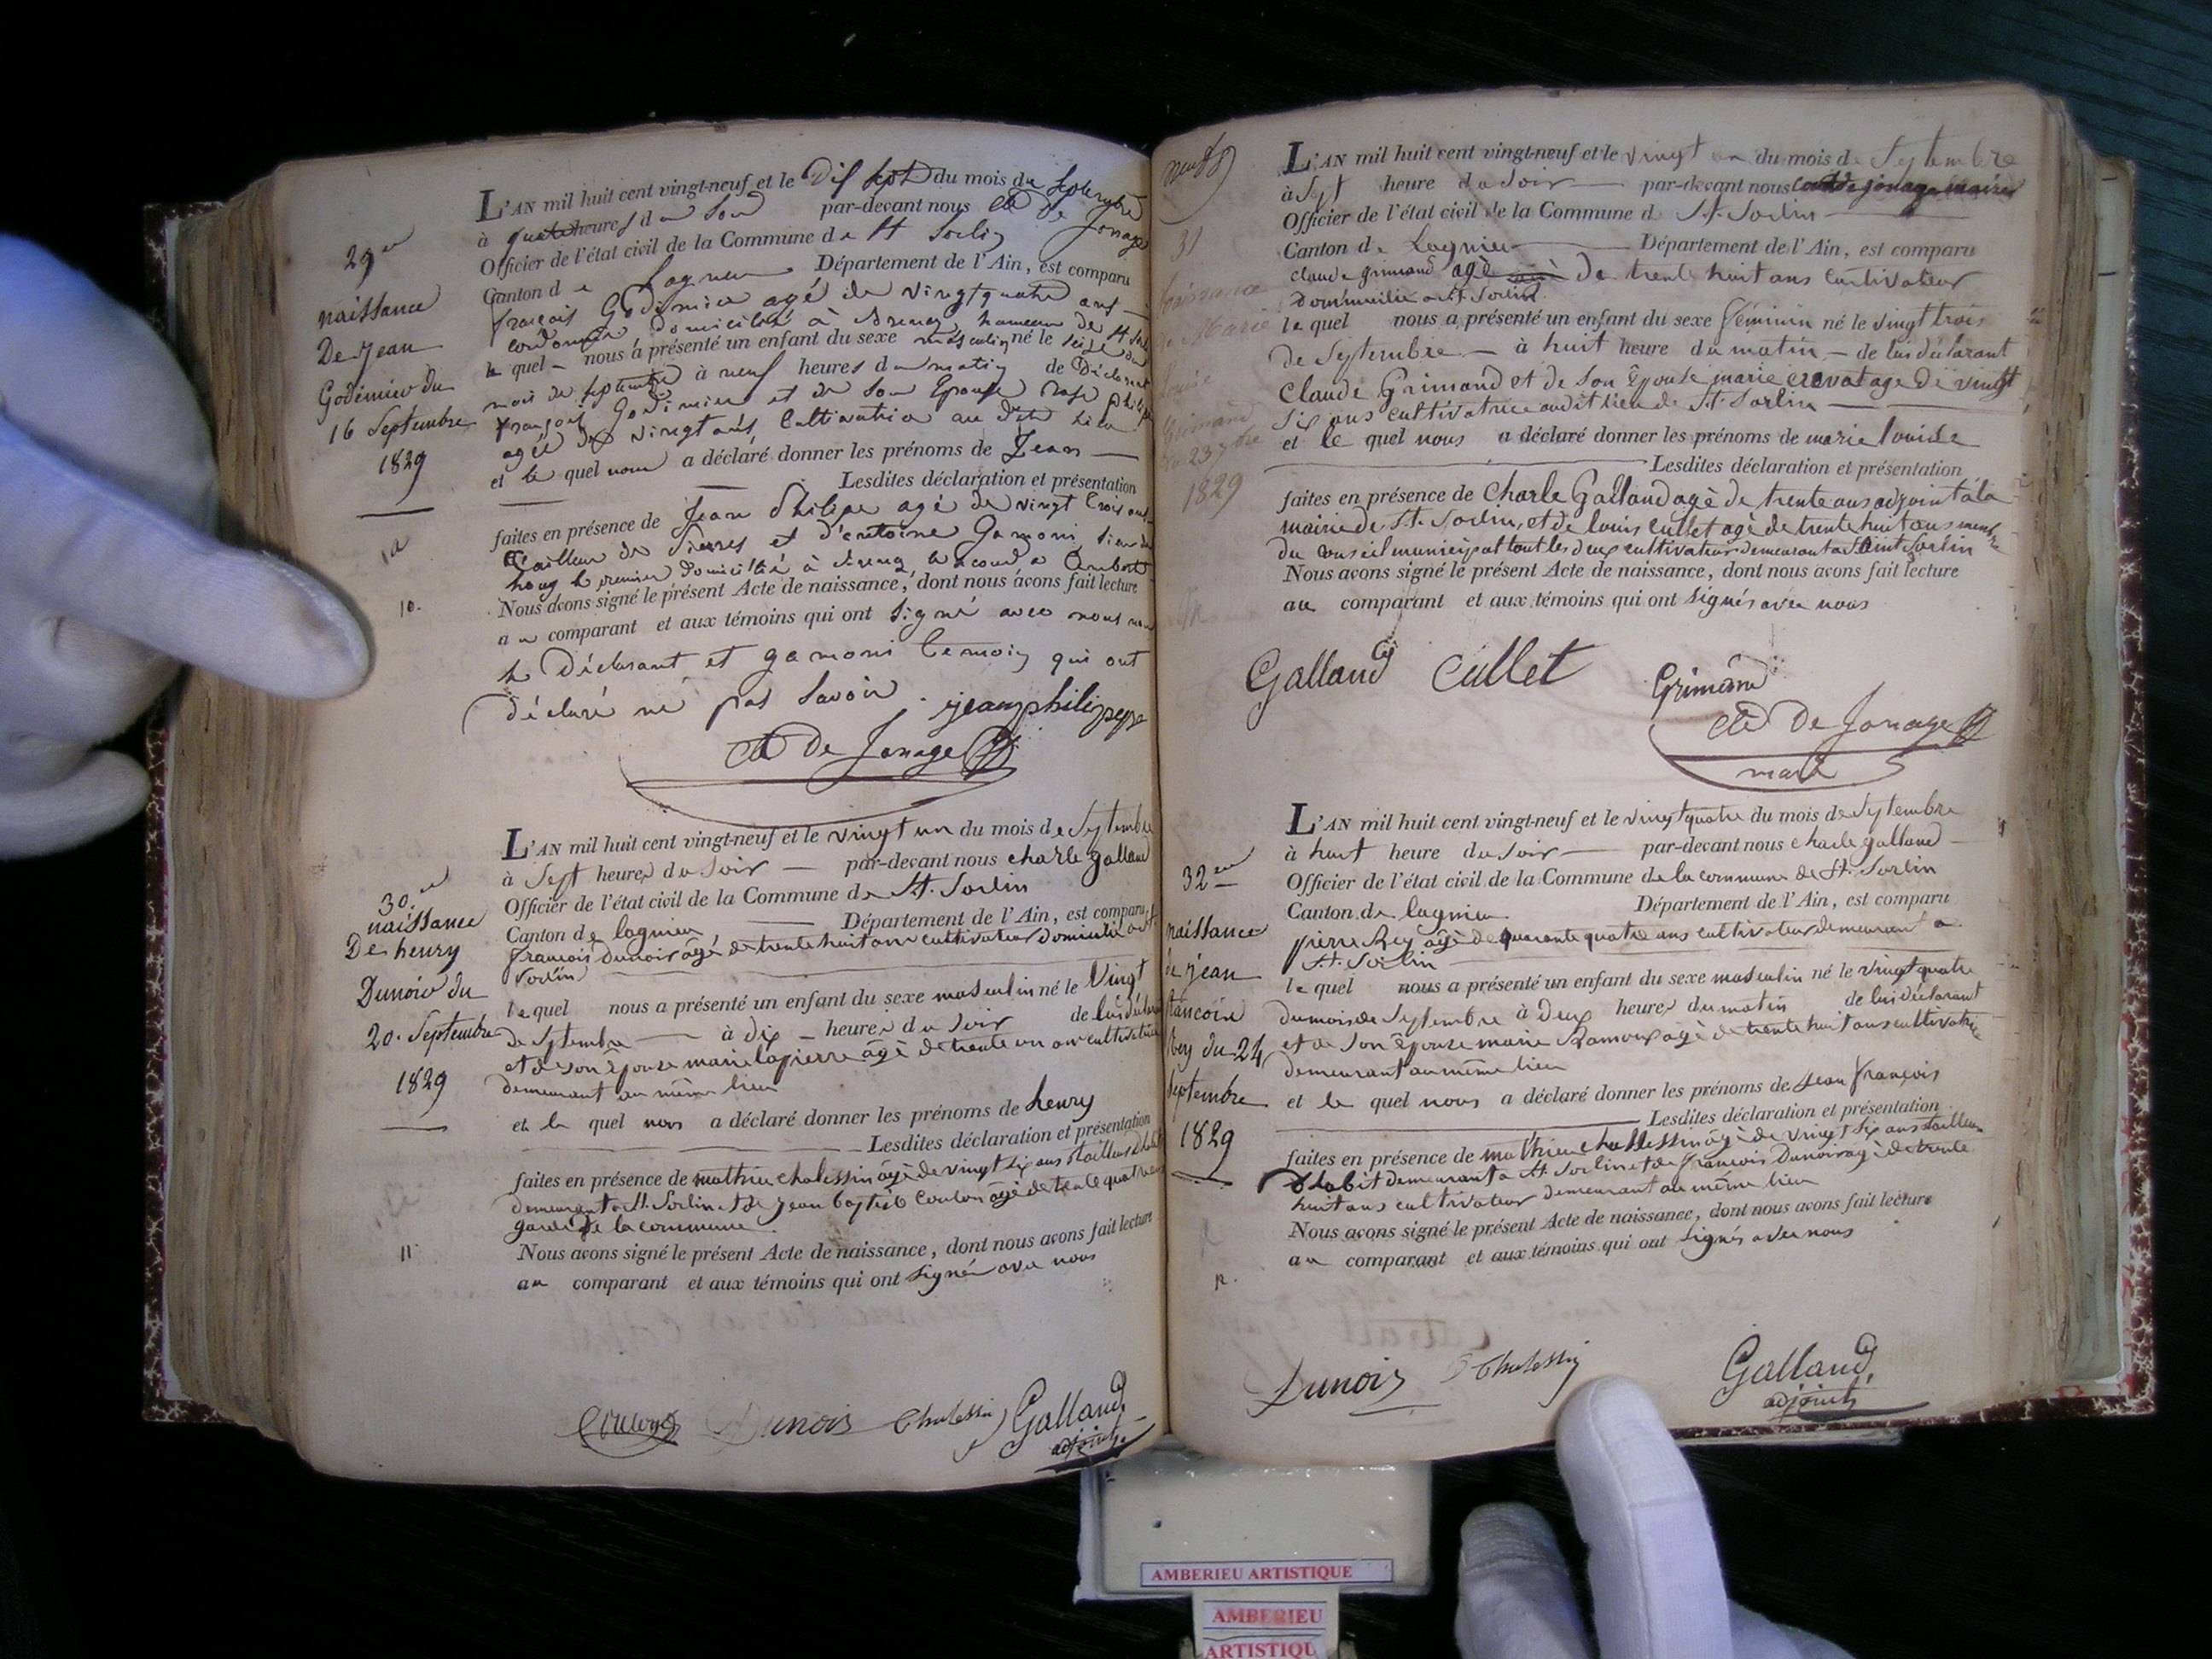 29
naissance
De Jean
Godimier du
16 Septembre
1829
L'AN mil huit cent vingt-neuf et le Dix Sept du mois de Septembre
à quatre heures du Soir par-devant nous Cte De Jonage
Officier de l'état civil de la Commune de St Sorlin
Canton de Lagnieu Département de l'Ain, est comparu
françois Godimier agé de vingt quatre ans
cordonnier Domicilié à hameau de St Sorlin
le quel nous a présenté un enfant du sexe masculin né le Seize du
mois de septembre à neuf heures du matin de Déclarant
françois Godimier et de Son Epouse Rose philippe
agée de vingt ans, Cultivatrice au Dit Lieu
et le quel nous a déclaré donner les prénoms de Jean
Lesdites déclaration et présentation
faites en présence de Jean Philippe agé de vingt trois ans
Tailleur de Pierres et d'antoine Gamoni
le premier Domicilié à le second a
10.
Nous avons signé le présent Acte de naissance, dont nous avons fait lecture
au comparant et aux témoins qui ont Signé avec nous non
le Déclarant et gamoni temoin qui ont
Déclaré ne pas Savoir. jean philippe
Cte De Jonage
30.
naissance
De henry
Dunoir du
20. Septembre
1829
L'AN mil huit cent vingt-neuf et le vingt un du mois de Septembre
à Sept heures du Soir par-devant nous charle galland
Officier de l'état civil de la Commune de St. Sorlin
Canton de lagnieu Département de l'Ain, est comparu
françois Dunoir âgé de trente huit ans cultivateur domicilié a St
Sorlin
le quel nous a présenté un enfant du sexe masculin né le Vingt
de Septembre à dix heures du Soir de lui déclarant
et de son Épouse marie lapierre âgé de trente un ans cultivatrice
demeurant au même lieu
et le quel nous a déclaré donner les prénoms de henry
Lesdites déclaration et présentation
faites en présence de mathieu chalessin âgé de vingt six ans tailleur d'habit
demeurant a St. Sorlin et de jean baptiste Coulon âgé de trente quatre ans
garde de la commune.
11
Nous avons signé le présent Acte de naissance, dont nous avons fait lecture
au comparant et aux témoins qui ont signés avec nous
Coulon Dunoir Chalessin Galland
adjoint
31
naissance
de Marie
louise
Grimand
du 23 7bre
1829
L'AN mil huit cent vingt-neuf et le vingt du mois de Septembre
à Sept heure du Soir par-devant nous Cte de jonage maire
Officier de l'état civil de la Commune d St. Sorlin
Canton de Lagnieu Département de l'Ain, est comparu
claude grimand agé de trente huit ans cultivateur
Domicilié a St. Sorlin
le quel nous a présenté un enfant du sexe féminin né le vingt trois
de Septembre à huit heure du matin de lui déclarant
Claude Grimand et de son Épouse marie cravat age de vingt
Six ans cultivatrice audit lieu de St. Sorlin
et le quel nous a déclaré donner les prénoms de marie louise
Lesdites déclaration et présentation
faites en présence de Charle Galland agé de trente ans adjoint à la
mairie de St. Sorlin, et de louis Cullet agé de trente huit ans membre
du conseil municipal tout les deux cultivateur demeurant a Saint Sorlin
Nous avons signé le présent Acte de naissance, dont nous avons fait lecture
au comparant et aux témoins qui ont signés avec nous
Galland Cullet Grimand
Cte De Jonage
maire
32
naissance
de jean
francois
Rey du 24
Septembre
1829
L'AN mil huit cent vingt-neuf et le vingt quatre du mois de Septembre
à huit heure du Soir par-devant nous charle galland
Officier de l'état civil de la Commune de la commune de St. Sorlin
Canton de lagnieu Département de l'Ain, est comparu
pierre Rey âgé de quarante quatre ans cultivateur demeurant a
St. Sorlin
le quel nous a présenté un enfant du sexe masculin né le vingt quatre
du mois de Septembre à deux heures du matin de lui déclarant
et de Son Épouse marie Ramoux agé de trente huit ans cultivatrice
demeurant au même lieu
et le quel nous a déclaré donner les prénoms de Jean françois
Lesdites déclaration et présentation
faites en présence de mathieu chalessin âgé de vingt six ans tailleur
d'habit demeurant a St. Sorlin et de françois Dunoir agé de trente
huit ans cultivateur demeurant au même lieu
Nous avons signé le présent Acte de naissance, dont nous avons fait lecture
au comparant et aux témoins qui ont signés avec nous
12.
Dunoir Chalessin Galland
adjoint
AMBERIEU ARTISTIQUE
AMBERIEU
ARTISTIQU